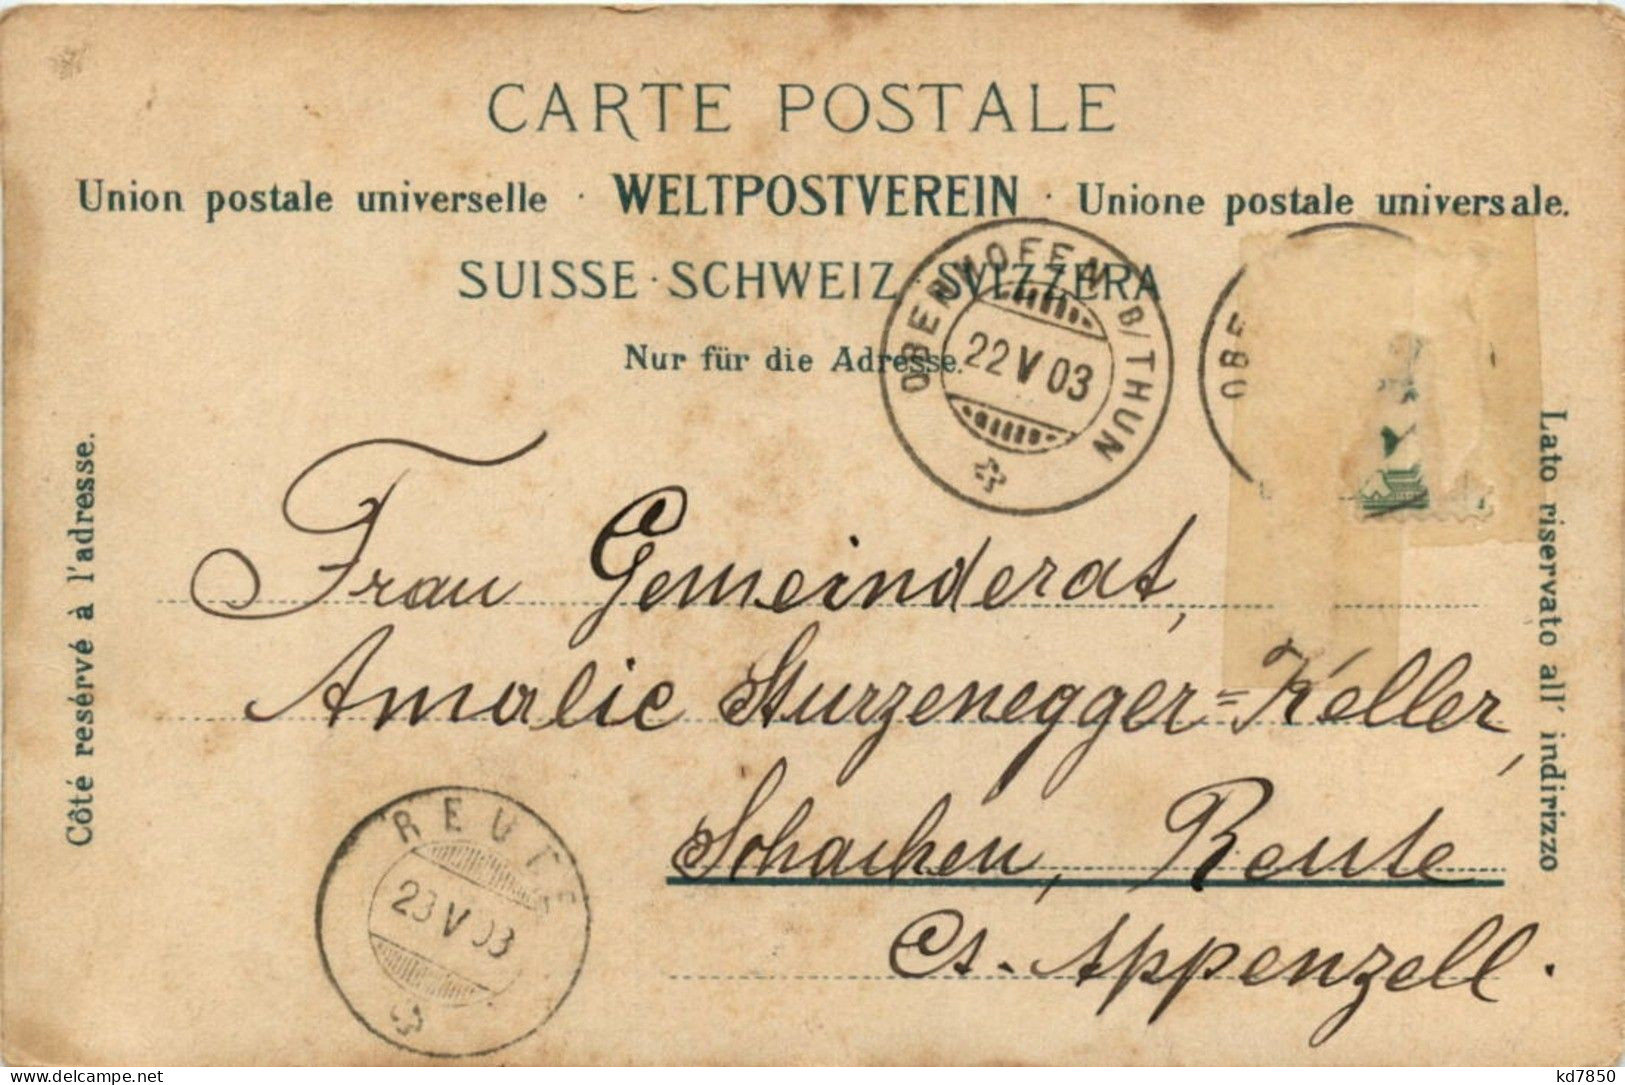 CARTE POSTALE
Union postale universelle · WELTPOSTVEREIN · Unione postale universale.
SUISSE · SCHWEIZ · SVIZZERA
Nur für die Adresse.
OBERHOFEN B/THUN
22 V 03
OBE
Côté resérvé à l'adresse.
Lato riservato all' indirizzo
Frau Gemeinderat,
Amalie Sturzenegger=Keller,
Schachen, Reute
Ct. Appenzell.
REUTE
23 V 03
delcampe.net
kd7850